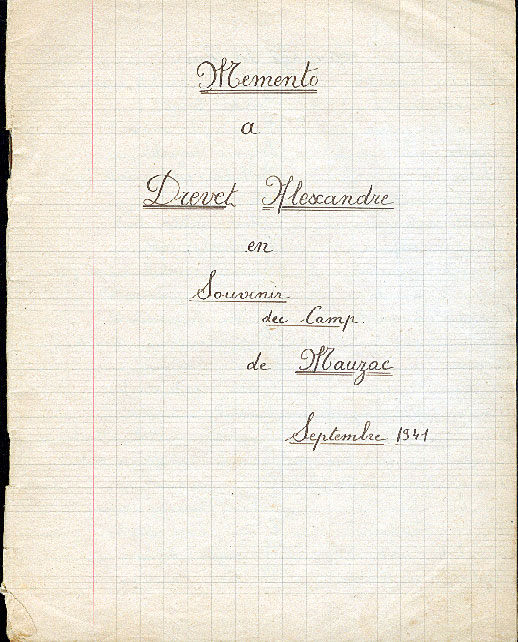 Memento
a
Drevet Alexandre
en
Souvenir
du Camp
de Mauzac
Septembre 1941